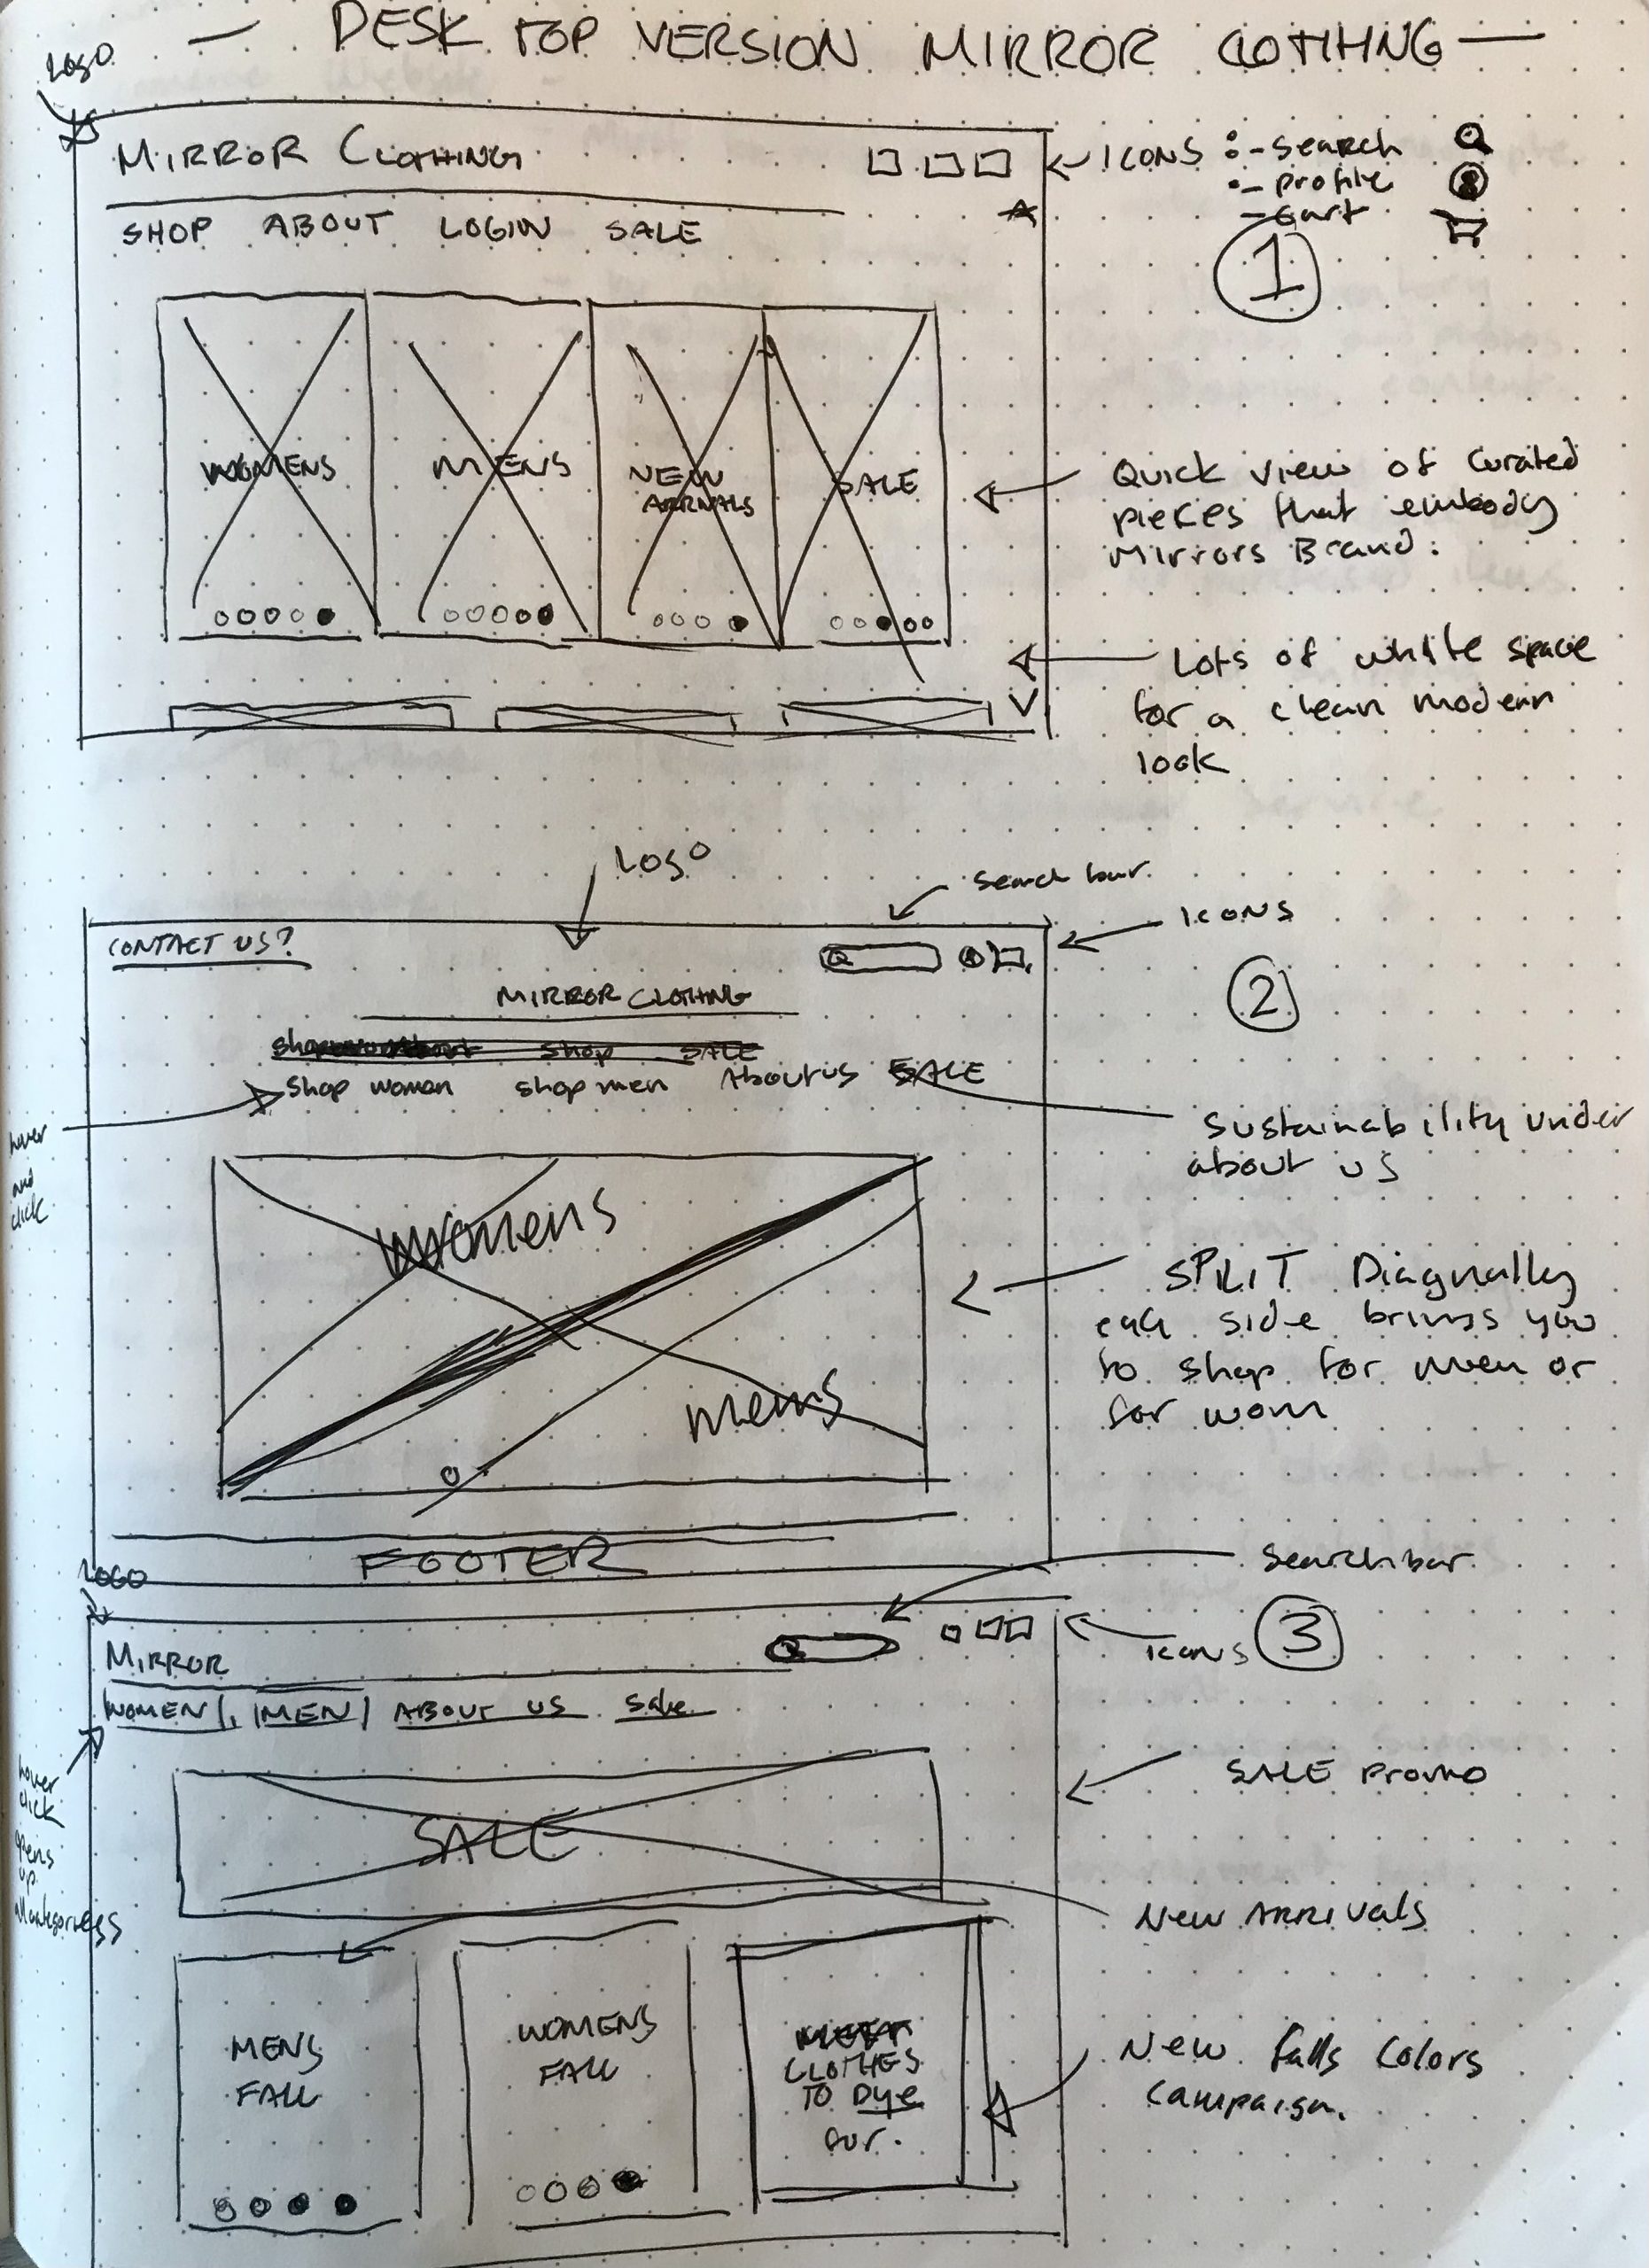 — DESK TOP VERSION MIRROR CLOTHING —
LOGO
MIRROR CLOTHING
ICONS :- search
- profile
- cart
SHOP ABOUT LOGIN SALE
1
WOMENS MENS NEW ARRIVALS SALE
Quick view of curated
pieces that embody
Mirrors Brand.
Lots of white space
for a clean modern
look
V
LOGO
Search bar
ICONS
CONTACT US?
2
MIRROR CLOTHING
shop SALE
Shop women shop men About us SALE
hover
and
click
Sustainability under
about us
Womens
mens
SPLIT Diagnally
each side brings you
to shop for men or
for wom
FOOTER
Searchbar
LOGO
MIRROR
icons 3
WOMEN MEN ABOUT US Sale
hover
click
opens
up
all categories
SALE
SALE promo
New ARRIVALS
MENS
FALL
WOMENS
FALL
CLOTHES
TO Dye
for.
New falls Colors
campaign.